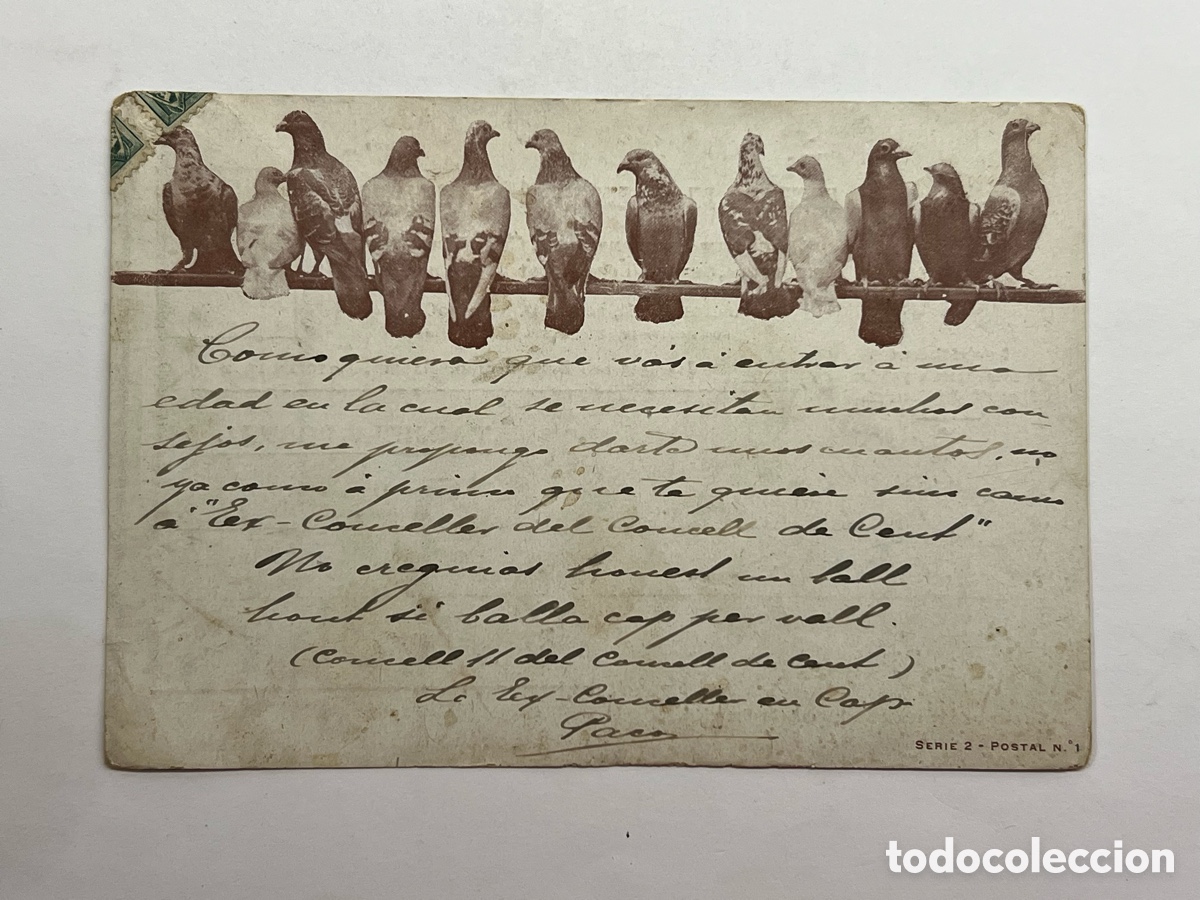 Como quiera que vás á entrar á una
edad en la cual se necesitan muchos con
sejos, me propongo darte unos cuantos, no
ya como á primo que te quiere sino como
á "Ex-Conceller del Concell de Cent"
No creguias honest un ball
hont si balla cap per vall.
(Concell 11 del Concell de Cent)
Lo Ex-Conceller en Cap
Paco
SERIE 2 - POSTAL N.º 1
todocoleccion